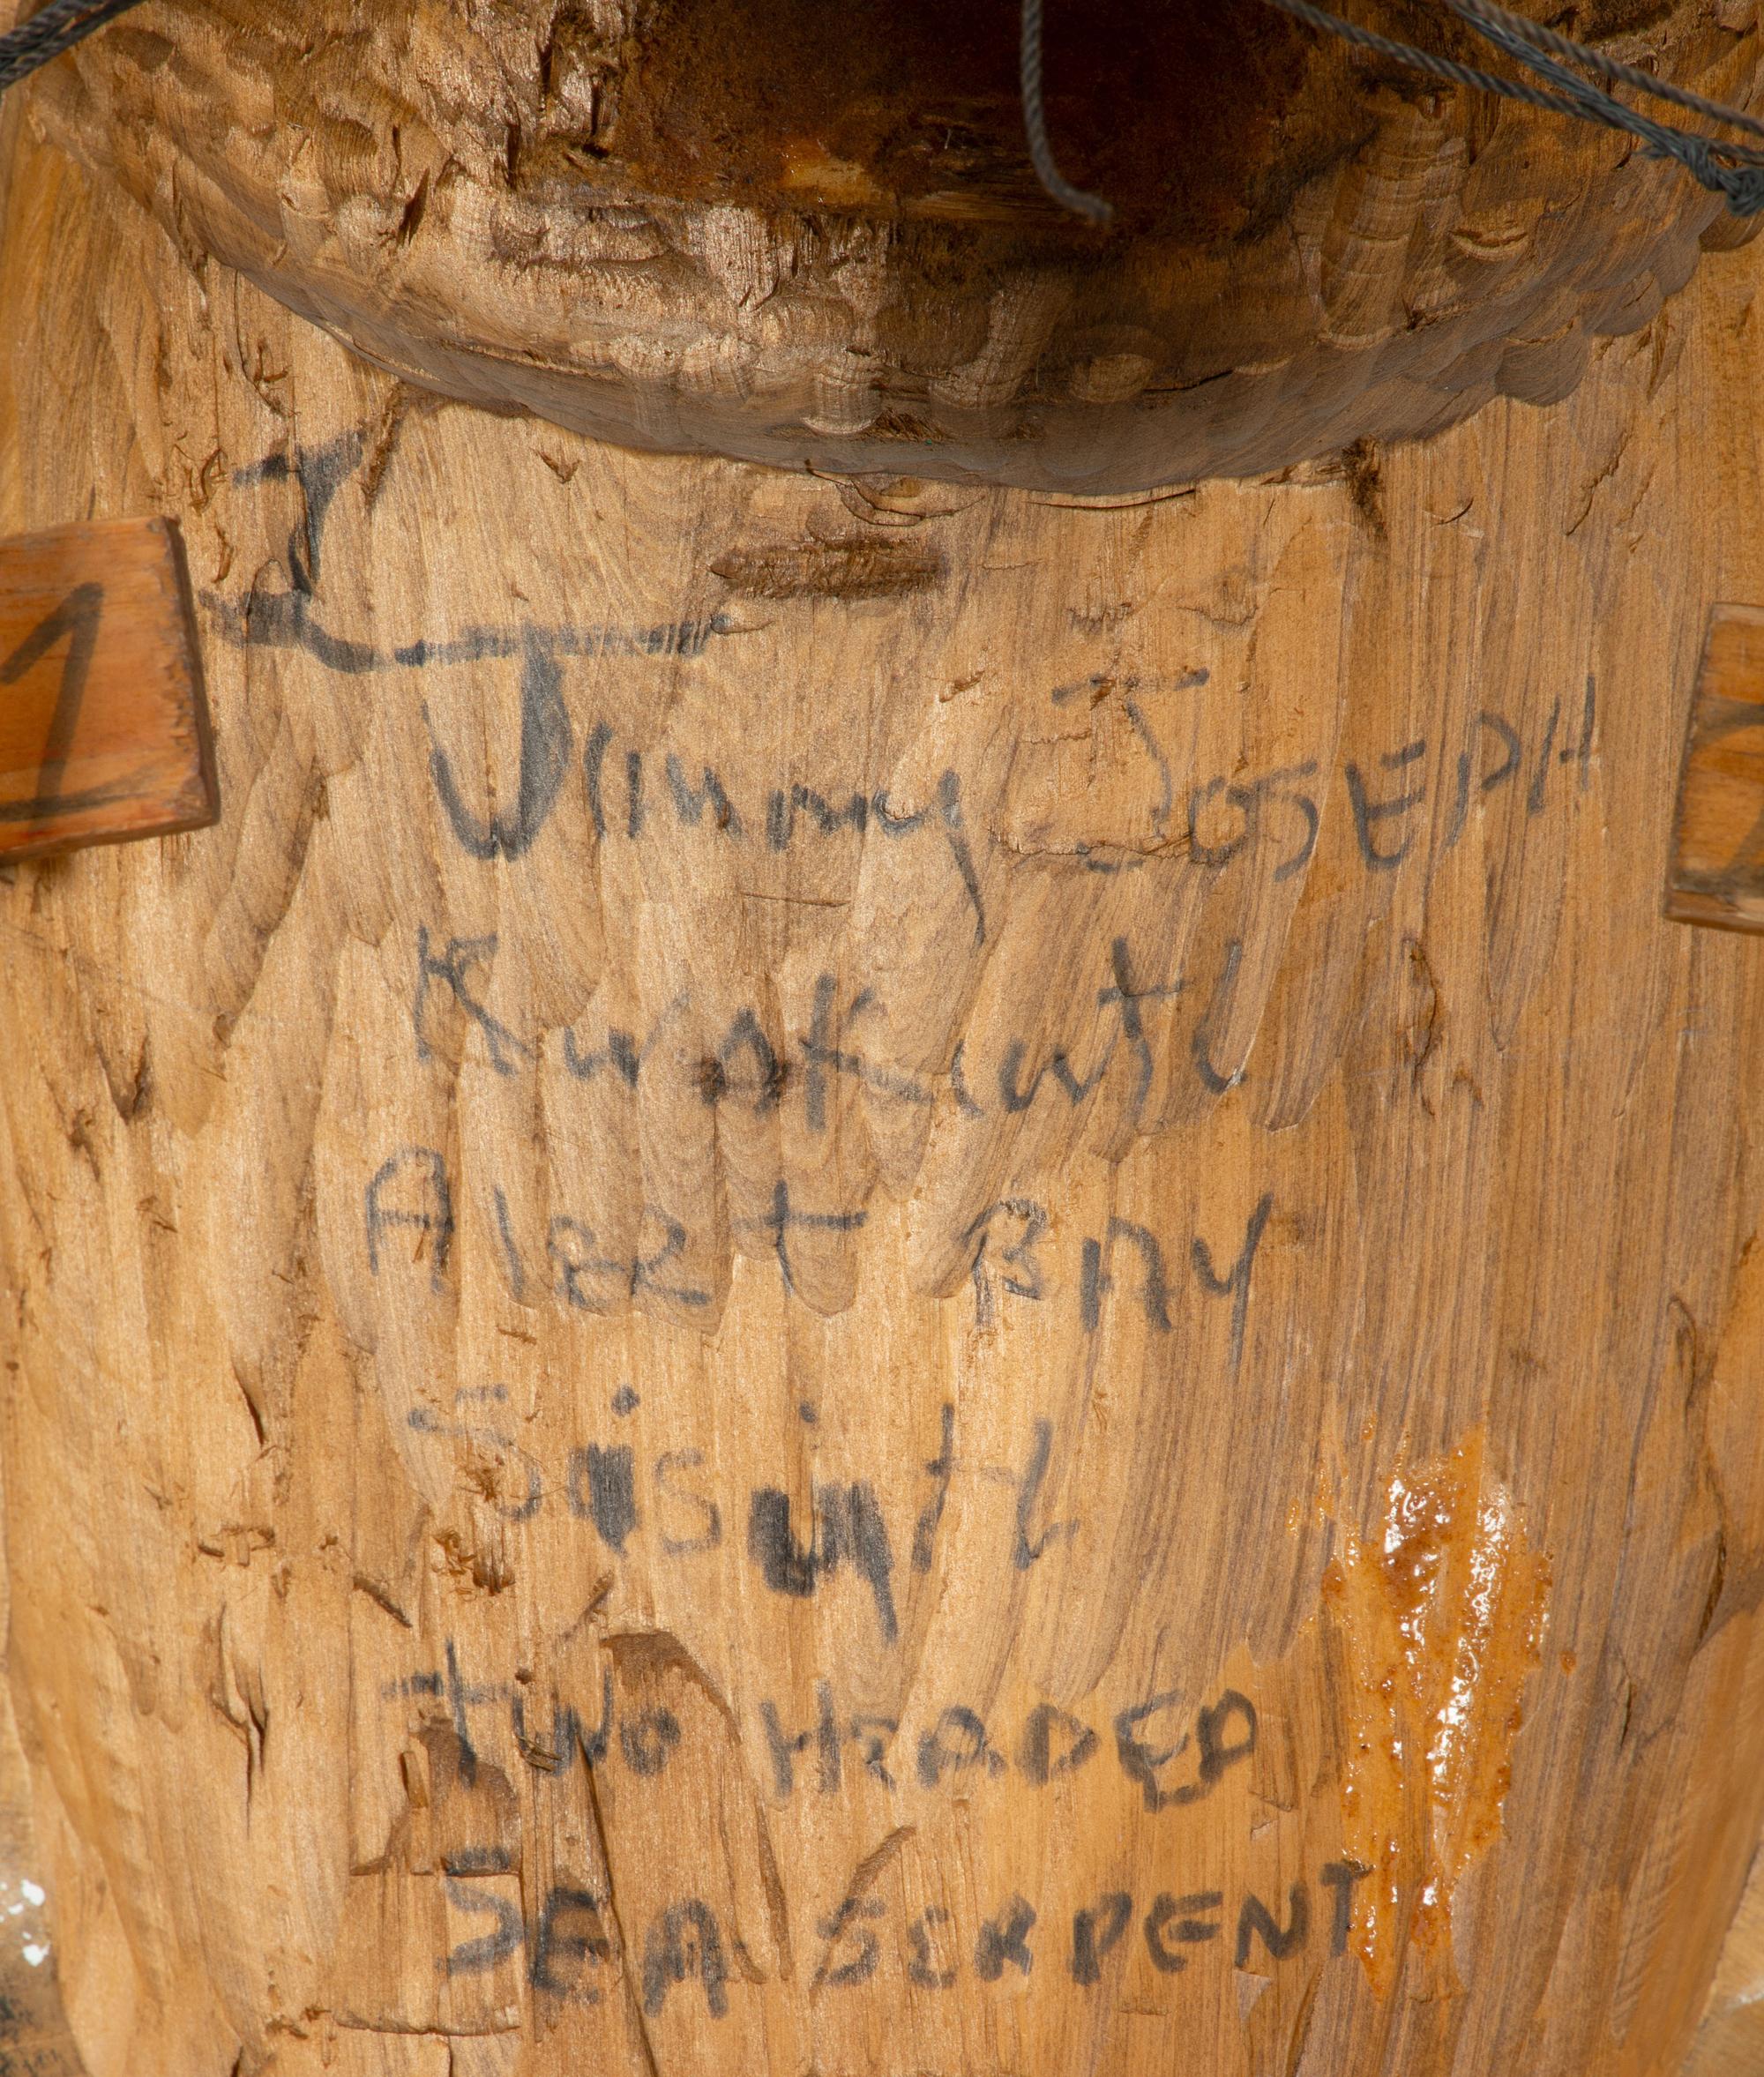 I
Jimmy JOSEPH
Kwakiutl
Alert BAY
Sisiytl
two HEADED
SEA SERPENT
1